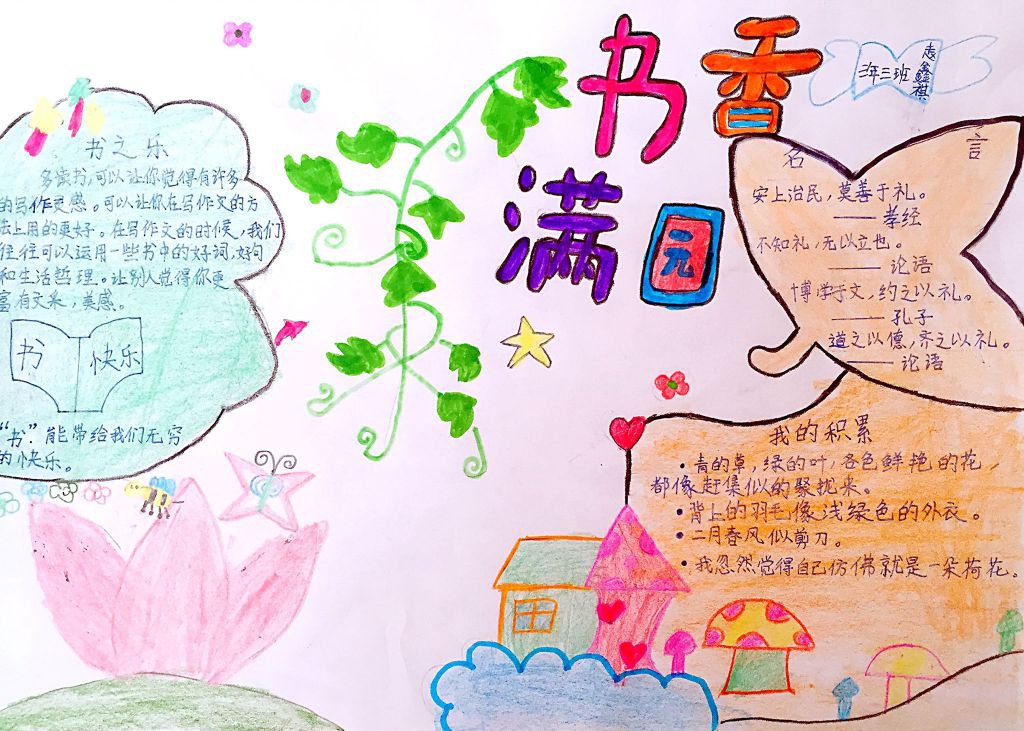 书香
满园
三年三班
鑫祺
书之乐
多读书,可以让你觉得有许多
的写作灵感。可以让你在写作文的方
法上用的更好。在写作文的时候,我们
往往可以运用一些书中的好词,好句
和生活哲理。让别人觉得你更
富有文采,美感。
书 快乐
“书”能带给我们无穷
的快乐。
名言
安上治民,莫善于礼。
——孝经
不知礼,无以立也。
——论语
博学于文,约之以礼。
——孔子
道之以德,齐之以礼。
——论语
我的积累
•青的草,绿的叶,各色鲜艳的花,
都像赶集似的聚拢来。
•背上的羽毛像浅绿色的外衣。
•二月春风似剪刀。
•我忽然觉得自己仿佛就是一朵荷花。